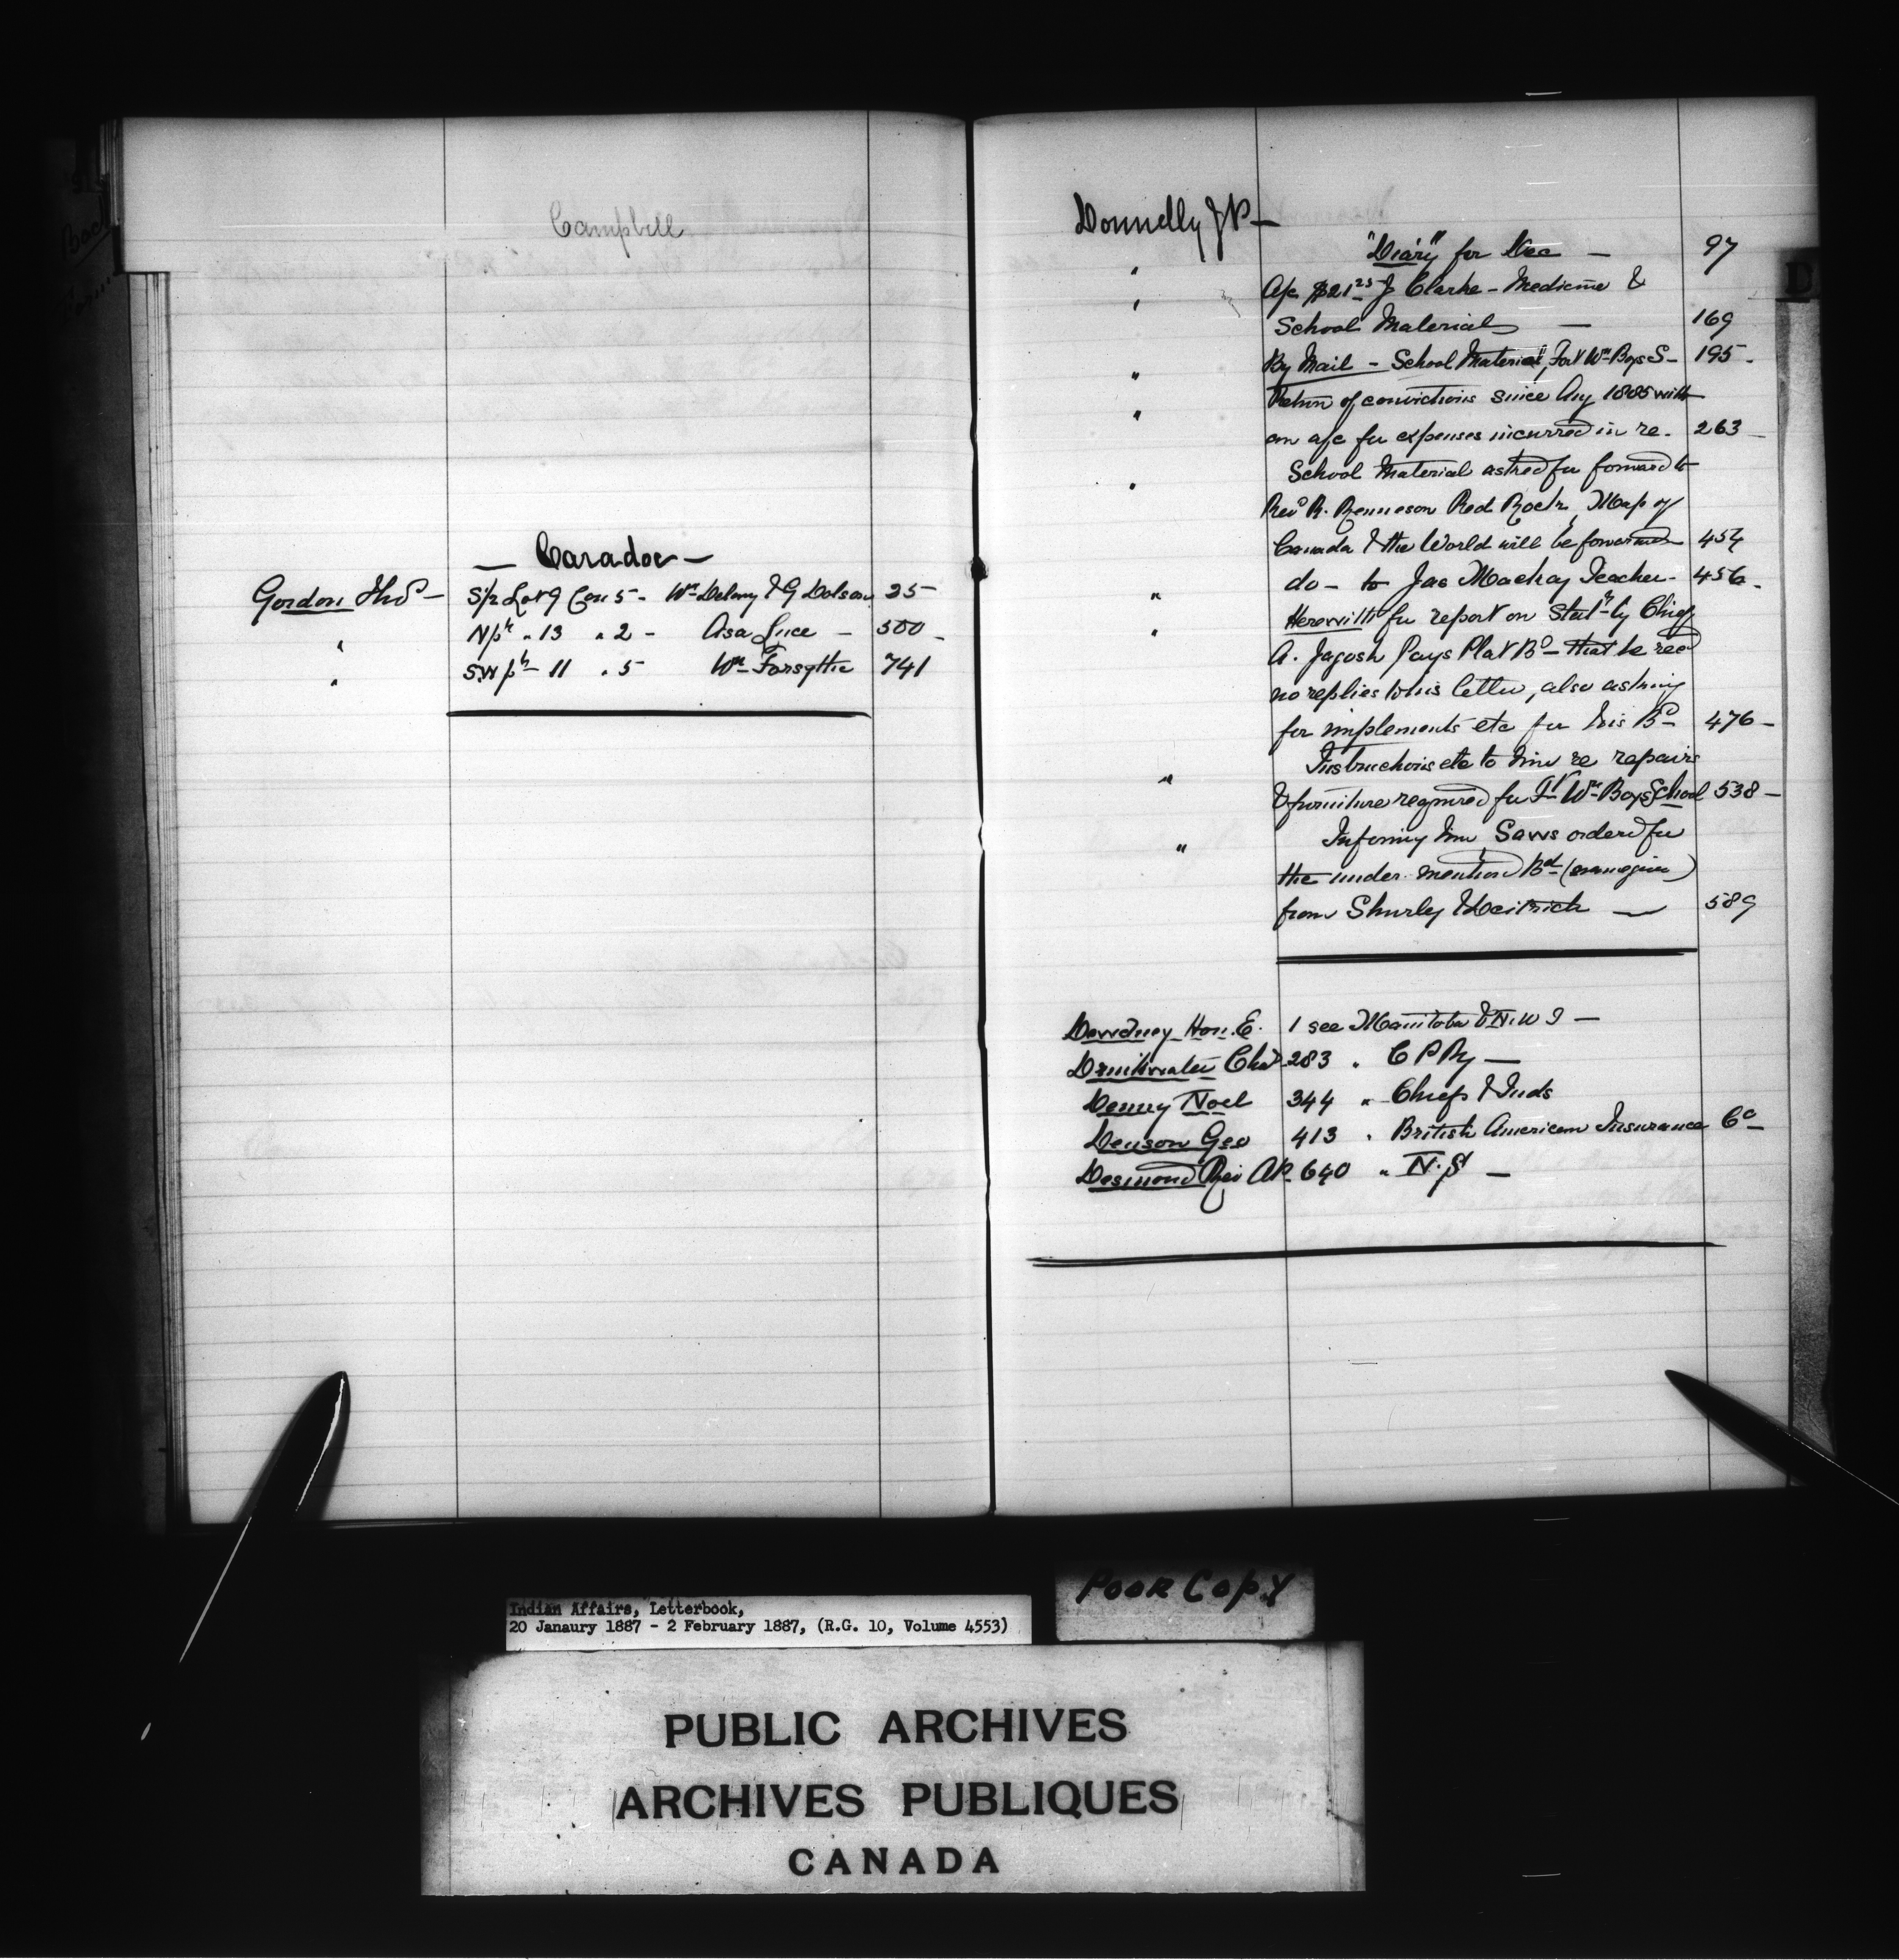 Campbell
— Caradoc —
Gordon Thos — S½ Lot 9 Con 5 - Wm Delany & G Dolson 25 -
" N pt " 13 " 2 - Asa Luce - 500 -
" SW pt - 11 " 5 Wm Forsythe 741
Donnelly J P —
" "Diary" for Dec — 97
" A/c $21.25 J Clarke - Medicine &
School Materials — 169
" By Mail - School Material, Fort Wm Boys S - 195 -
" Return of convictions since Aug 1885 with
an a/c for expenses incurred in re. 263 -
" School Material asked for forward to
Revd R. Renneson Red Rock, Map of
Canada & the World will be forwarded 454
" do - to Jas Mackay Teacher - 456 -
" Herewith for report on Statt by Chief
A. Jagosh Pays Plat Bd - that he recd
no replies to his letter, also asking
for implements etc for his Bd 476 -
" Instructions etc to him re repairs
& furniture required for Ft Wm Boys School 538 -
" Informing him Saws ordered for
the under mentiond Bd
from Shurly & Deitrich — 589
D
Dewdney Hon. E. 1 see Manitoba & N.W T —
Drinkwater Chas 283 " C P Ry —
Denny Noel 344 " Chiefs & Inds
Denson Geo 413 " British American Insurance Co -
Desmond Rev A P. 640 " N.S —
Poor Copy
Indian Affairs, Letterbook,
20 Janaury 1887 - 2 February 1887, (R.G. 10, Volume 4553)
PUBLIC ARCHIVES
ARCHIVES PUBLIQUES
CANADA